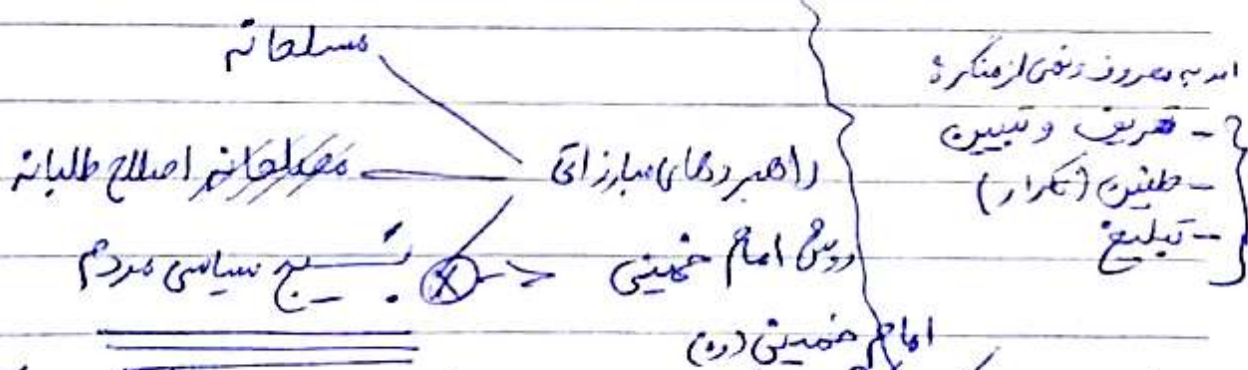 امر به معروف و نهی از منکر:
- تعریف و تبیین
- طنین (تکرار)
- تبلیغ
مسلحانه
راهبردهای مبارزاتی
مصلحانه اصلاح طلبانه
روش امام خمینی
بسیج سیاسی مردم
امام خمینی (ره)